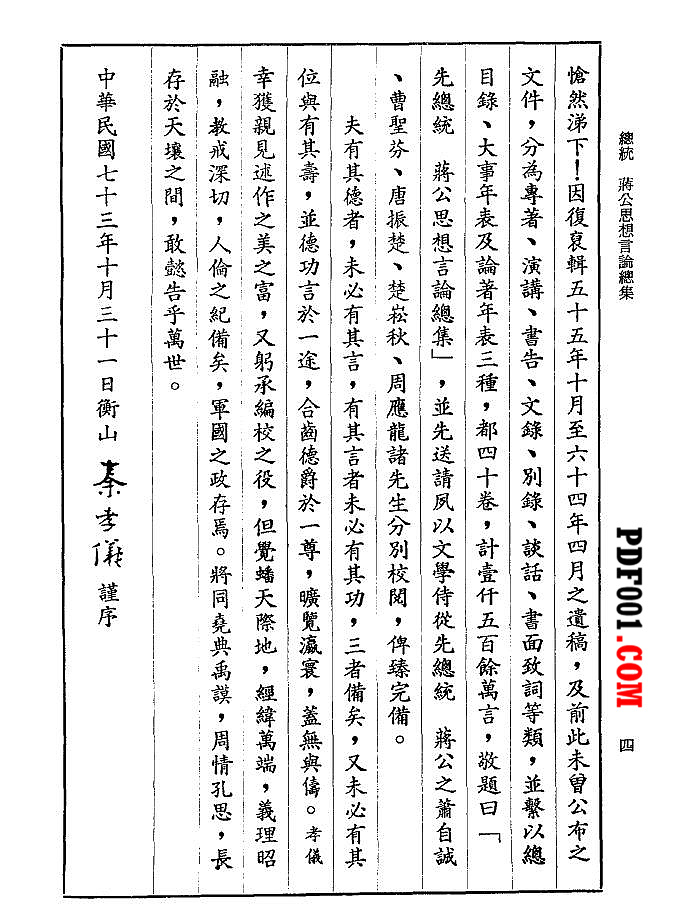 總統 蔣公思想言論總集
四
愴然涕下！因復裒輯五十五年十月至六十四年四月之遺稿，及前此未曾公布之
文件，分為專著、演講、書告、文錄、別錄、談話、書面致詞等類，並繫以總
目錄、大事年表及論著年表三種，都四十卷，計壹仟五百餘萬言，敬題曰「
先總統 蔣公思想言論總集」，並先送請夙以文學侍從先總統 蔣公之蕭自誠
、曹聖芬、唐振楚、楚崧秋、周應龍諸先生分別校閱，俾臻完備。
夫有其德者，未必有其言，有其言者未必有其功，三者備矣，又未必有其
位與有其壽，並德功言於一途，合齒德爵於一尊，曠覽瀛寰，蓋無與儔。孝儀
幸獲親見述作之美之富，又躬承編校之役，但覺蟠天際地，經緯萬端，義理昭
融，教戒深切，人倫之紀備矣，軍國之政存焉。將同堯典禹謨，周情孔思，長
存於天壤之間，敢懿告乎萬世。
中華民國七十三年十月三十一日衡山 秦孝儀 謹序
PDF001.COM